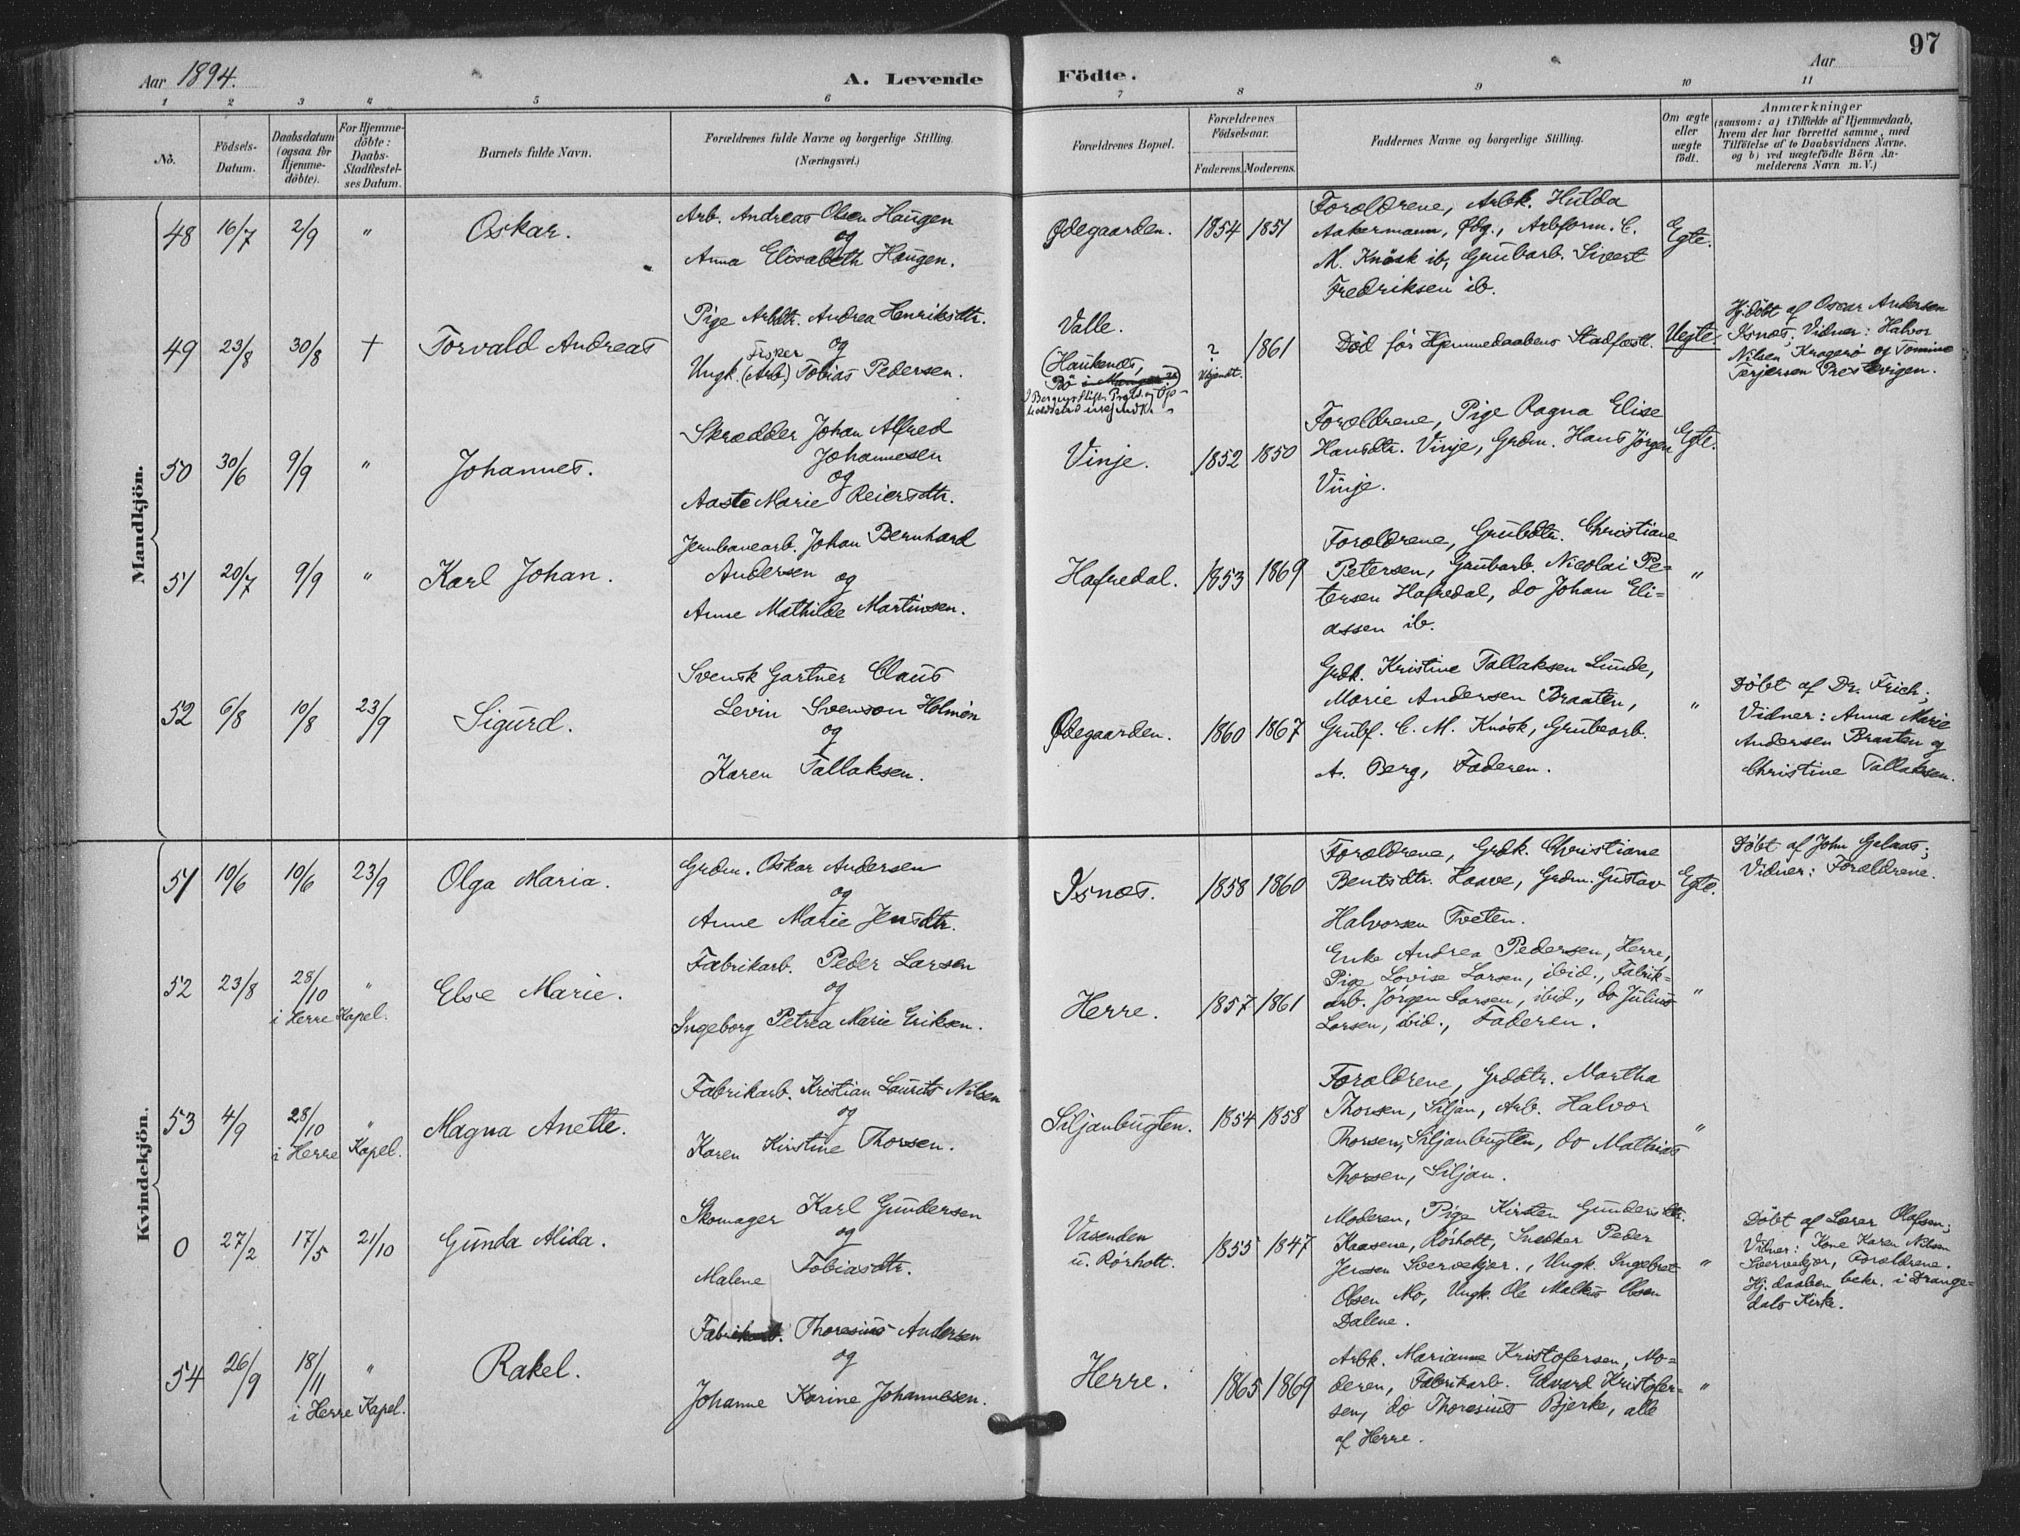 Aar 1894.
A. Levende Födte.
Aar
97
1 2 3 4 5 6 7 8 9 10 11
No.
Födsels-
Datum.
Daabsdatum
(ogsaa for
Hjemme-
döbte).
For Hjemme-
döbte:
Daabs-
Stadfæstel-
ses Datum.
Barnets fulde Navn.
Forældrenes fulde Navne og borgerlige Stilling.
(Næringsvei.)
Forældrenes Bopæl.
Forældrenes
Födselsaar.
Faderens. Moderens.
Faddernes Navne og borgerlige Stilling.
Om ægte
eller
uægte
födt.
Anmærkninger
(saasom: a) i Tilfælde af Hjemmedaab,
hvem der har forrettet samme, med
Tilföielse af to Daabsvidners Navne,
og b) ved uægtefödte Börn An-
melderens Navn m. V.)
Mandkjön.
48 16/7 2/9 " Oskar.
Arb. Andreas Olsen Haugen
og
Anna Elisabeth Haugen.
Ødegaarden. 1854 1851
Forældrene, Arbk. Hulda
Aakermann, Ødg., Arbform. C.
M. Knösk ib, Grubarb. Sivert
Fredriksen ib.
Egte.
49 23/8 30/8 † Torvald Andreas
Pige Arbdtr. Andrea Henriksdtr.
og
Fisker
Ungk. (Arb) Tobias Pedersen.
Valle.
(Haukenæs,
Bö
? Ubjendt. 1861
Död för Hjemmedaabens Stadfæst.
Uegte.
Hjdöbt af Oscar Andersen
Isnæs. Vidner: Halvor
Nilsen Kragerö og Tomine
Terjersen Prestvigen.
50 30/6 9/9 " Johannes.
Skrædder Johan Alfred
Johannesen
og
Aaste Marie Reiersdtr.
Vinje. 1852 1850
Forældrene, Pige Ragna Elise
Hansdtr. Vinje, Grdm. Hans Jörgen
Vinje.
Egte.
51 20/7 9/9 " Karl Johan.
Jernbanearb. Johan Bernhard
Andersen og
Anne Mathilde Martinsen.
Hafredal. 1853 1869
Forældrene, Grubdtr. Christiane
Petersen, Grubarb. Nicolai Pe-
tersen Hafredal, do Johan Eli-
assen ib.
"
52 6/8 10/8 23/9 Sigurd.
Svensk Gartner Claus
Levin Svenson Holmén
og
Karen Tallaksen.
Ødegaarden. 1860 1867
Grdk. Kristine Tallaksen Lunde,
Marie Andersen Braaten,
Grubf. C. M. Knösk, Grubearb.
A. Berg, Faderen.
"
Döbt af Dr. Frich;
Vidner: Anna Marie
Andersen Braaten og
Christine Tallaksen.
Kvindekjön.
51 10/6 10/6 23/9 Olga Maria.
Grdm. Oskar Andersen
og
Anne Marie Jensdtr.
Isnæs. 1858 1860
Forældrene, Grdk. Christiane
Bentsdtr. Haave, Grdm. Gustav
Halvorsen Tveten.
Egte.
Döbt af John Gjelnæs;
Vidner: Forældrene.
52 23/8 28/10 " Else Marie.
i Herre Kapel.
Fabrikarb. Peder Larsen
og
Ingeborg Petrea Marie Eriksen.
Herre. 1857 1861
Enke Andrea Pedersen, Herre,
Pige Lovise Larsen, ibid., Fabrik-
arb. Jörgen Larsen, ibid., do Julius
Larsen, ibid., Faderen.
"
53 4/9 28/10 " Magna Anette.
i Herre Kapel.
Fabrikarb. Kristian Laurits Nilsen
og
Karen Kirstine Thorsen.
Siljanbugten. 1854 1858
Forældrene, Grddtr. Martha
Thorsen, Siljan, Arb. Halvor
Thorsen, Siljanbugten, do Mathias
Thorsen, Siljan.
"
0 27/2 17/5 21/10 Gunda Alida.
Skomager Karl Gundersen
og
Malene Tobiasdtr.
Vasenden
u. Rörholt. 1855 1847
Moderen, Pige Kirsten Gundersdtr.
Kaasene, Rörholt, Snedker Peder
Jensen Svervekjær., Ungk. Ingebret
Olsen Mo, Ungk. Ole Malkus Olsen
Dalene.
"
Döbt af Lærer Olafsen;
Vidner: Kone Karen Nilsen
Svervekjær, Forældrene.
Hj.daaben bekr. i Drange-
dals Kirke.
54 26/9 18/11 " Rakel.
i Herre Kapel.
Fabrikarb. Thoresius Andersen
og
Johanne Karine Johannesen.
Herre. 1865 1869
Arbk. Marianne Kristofersen, Mo-
deren, Fabrikarb. Edvard Kristofer-
sen, do Thoresius Bjerke, alle
af Herre.
"